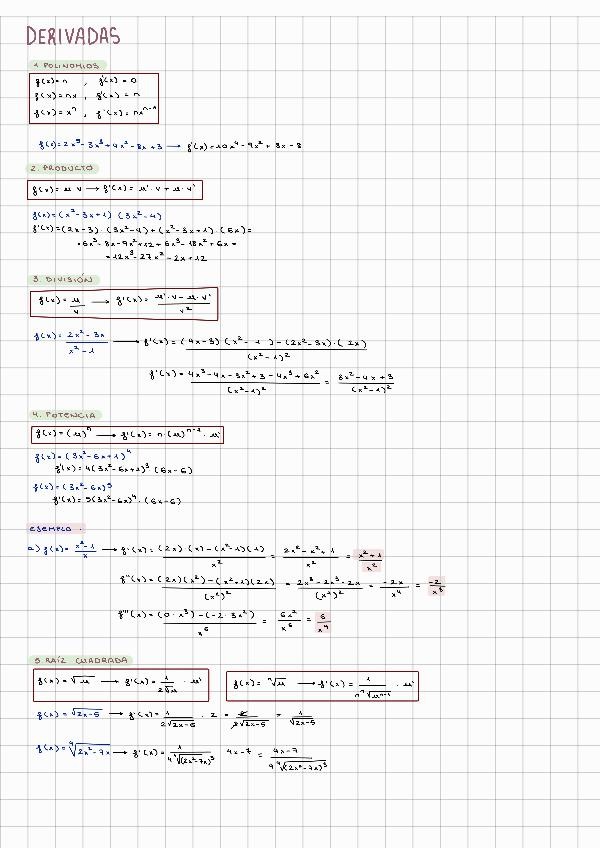 DERIVADAS
1. POLINOMIOS
f(x)=n , f'(x)=0
f(x)=nx , f'(x)=n
f(x)=xⁿ , f'(x)=nxⁿ⁻¹
f(x)=2x⁵-3x³+4x²-8x+3 → f'(x)=10x⁴-9x²+8x-8
2. PRODUCTO
f(x)=u·v → f'(x)=u'·v+u·v'
f(x)=(x²-3x+1)·(3x²-4)
f'(x)=(2x-3)·(3x²-4)+(x²-3x+1)·(6x)=
=6x³-8x-9x²+12+6x³-18x²+6x=
=12x³-27x²-2x+12
3. DIVISIÓN
f(x)=u/v → f'(x)=(u'·v-u·v')/v²
f(x)=(2x²-3x)/(x²-1) → f'(x)=((4x-3)·(x²-1)-(2x²-3x)·(2x))/(x²-1)²
f'(x)=(4x³-4x-3x²+3-4x³+6x²)/(x²-1)² = (3x²-4x+3)/(x²-1)²
4. POTENCIA
f(x)=(u)ⁿ → f'(x)=n·(u)ⁿ⁻¹·u'
f(x)=(3x²-6x+1)⁴
f'(x)=4(3x²-6x+1)³·(6x-6)
f(x)=(3x²-6x)⁵
f'(x)=5(3x²-6x)⁴·(6x-6)
EJEMPLO.
a) f(x)=(x²-1)/x → f'(x)=((2x)·(x)-(x²-1)(1))/x² = (2x²-x²+1)/x² = (x²+1)/x²
f''(x)=((2x)(x²)-(x²+1)(2x))/(x²)² = (2x³-2x³-2x)/(x²)² = -2x/x⁴ = -2/x³
f'''(x)=((0·x³)-(-2·3x²))/x⁶ = 6x²/x⁶ = 6/x⁴
5. RAÍZ CUADRADA
f(x)=√u → f'(x)=1/(2√u)·u' f(x)=ⁿ√u → f'(x)=1/(n ⁿ√uⁿ⁻¹)·u'
f(x)=√(2x-5) → f'(x)=1/(2√(2x-5))·2 = 2/(2√(2x-5)) = 1/√(2x-5)
f(x)=⁴√(2x²-7x) → f'(x)=1/(4 ⁴√(2x²-7x)³) 4x-7 = (4x-7)/(4 ⁴√(2x²-7x)³)